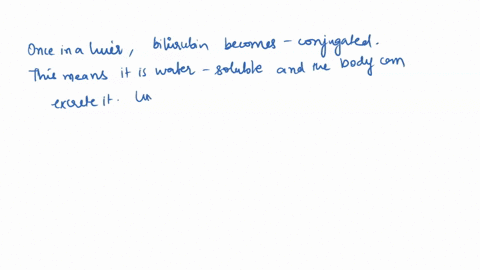 Once in a liver, bilirubin becomes - conjugated.
This means it is water - soluble and the body can
excrete it. Un